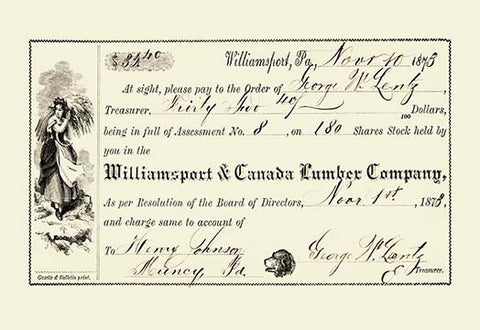 Williamsport, Pa, Novr 10 1873
At sight, please pay to the Order of George W. Lentz,
Treasurer, 40/100 Dollars,
being in full of Assessment No. 8, on 180 Shares Stock held by
you in the
Williamsport & Canada Lumber Company,
As per Resolution of the Board of Directors, Novr 1st, 1873,
and charge same to account of
To Henry Johnson George W. Lentz
Muncy, Pa. Treasurer.
Gazette & Bulletin print.